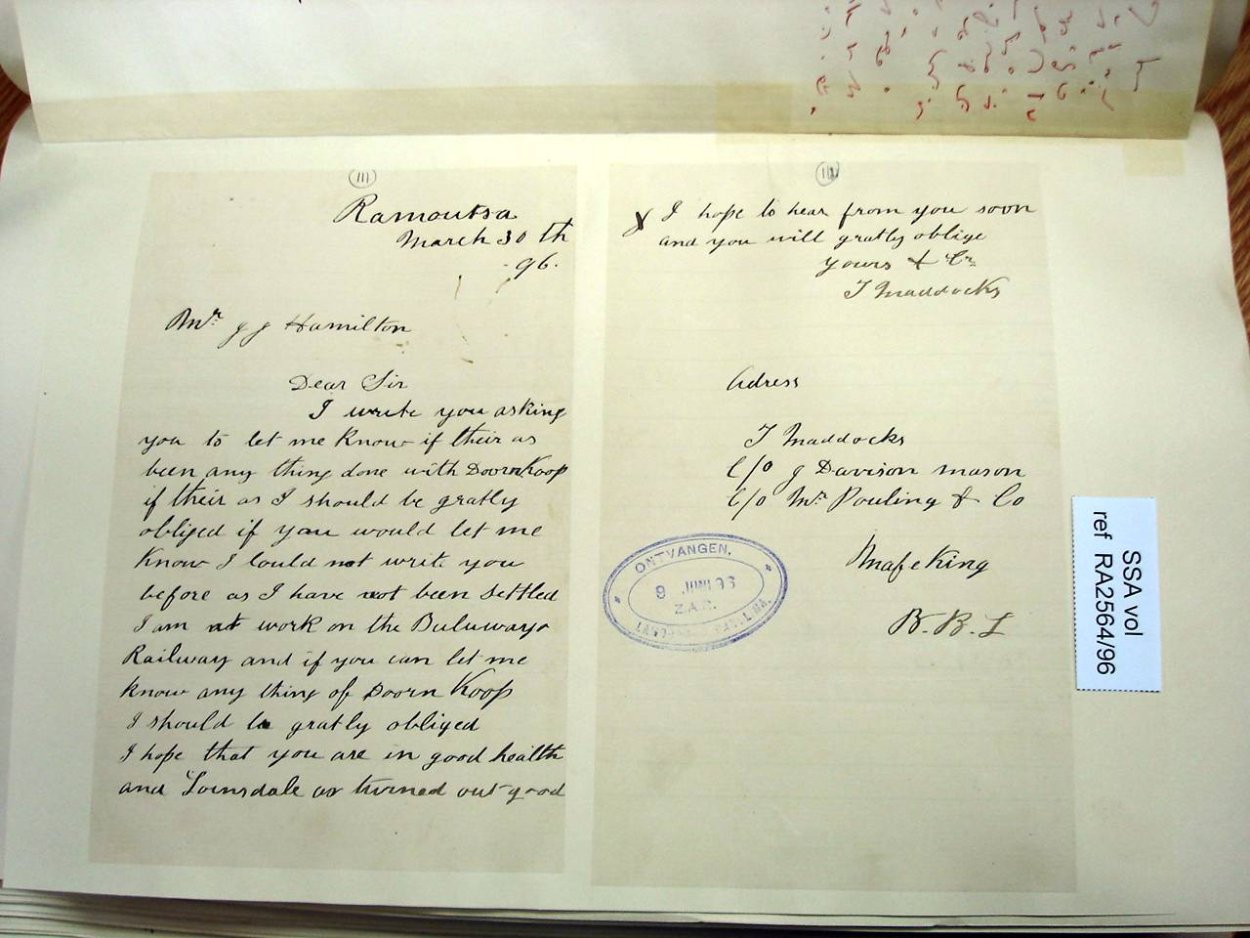 111
Ramoutsa
March 30th
-96.
Mr J J Hamilton
Dear Sir
I write you asking
you to let me Know if their as
been any thing done with Doornkoop
if their as I should be gratly
obliged if you would let me
Know I Could not write you
before as I have not been settled
I am at work on the Buluwayo
Railway and if you can let me
Know any thing of Doorn Koop
I should be gratly obliged
I hope that you are in good health
and Loinsdale as turned out good
I hope to hear from you soon
and you will gratly oblige
yours & Cr.
T Maddocks
Adress
T Maddocks
C/o J Davison mason
C/o Mr Pouling & Co
Mafeking
B. B. L
ONTVANGEN.
9 JUNI 96
Z.A.R.
SSA vol
ref RA2564/96